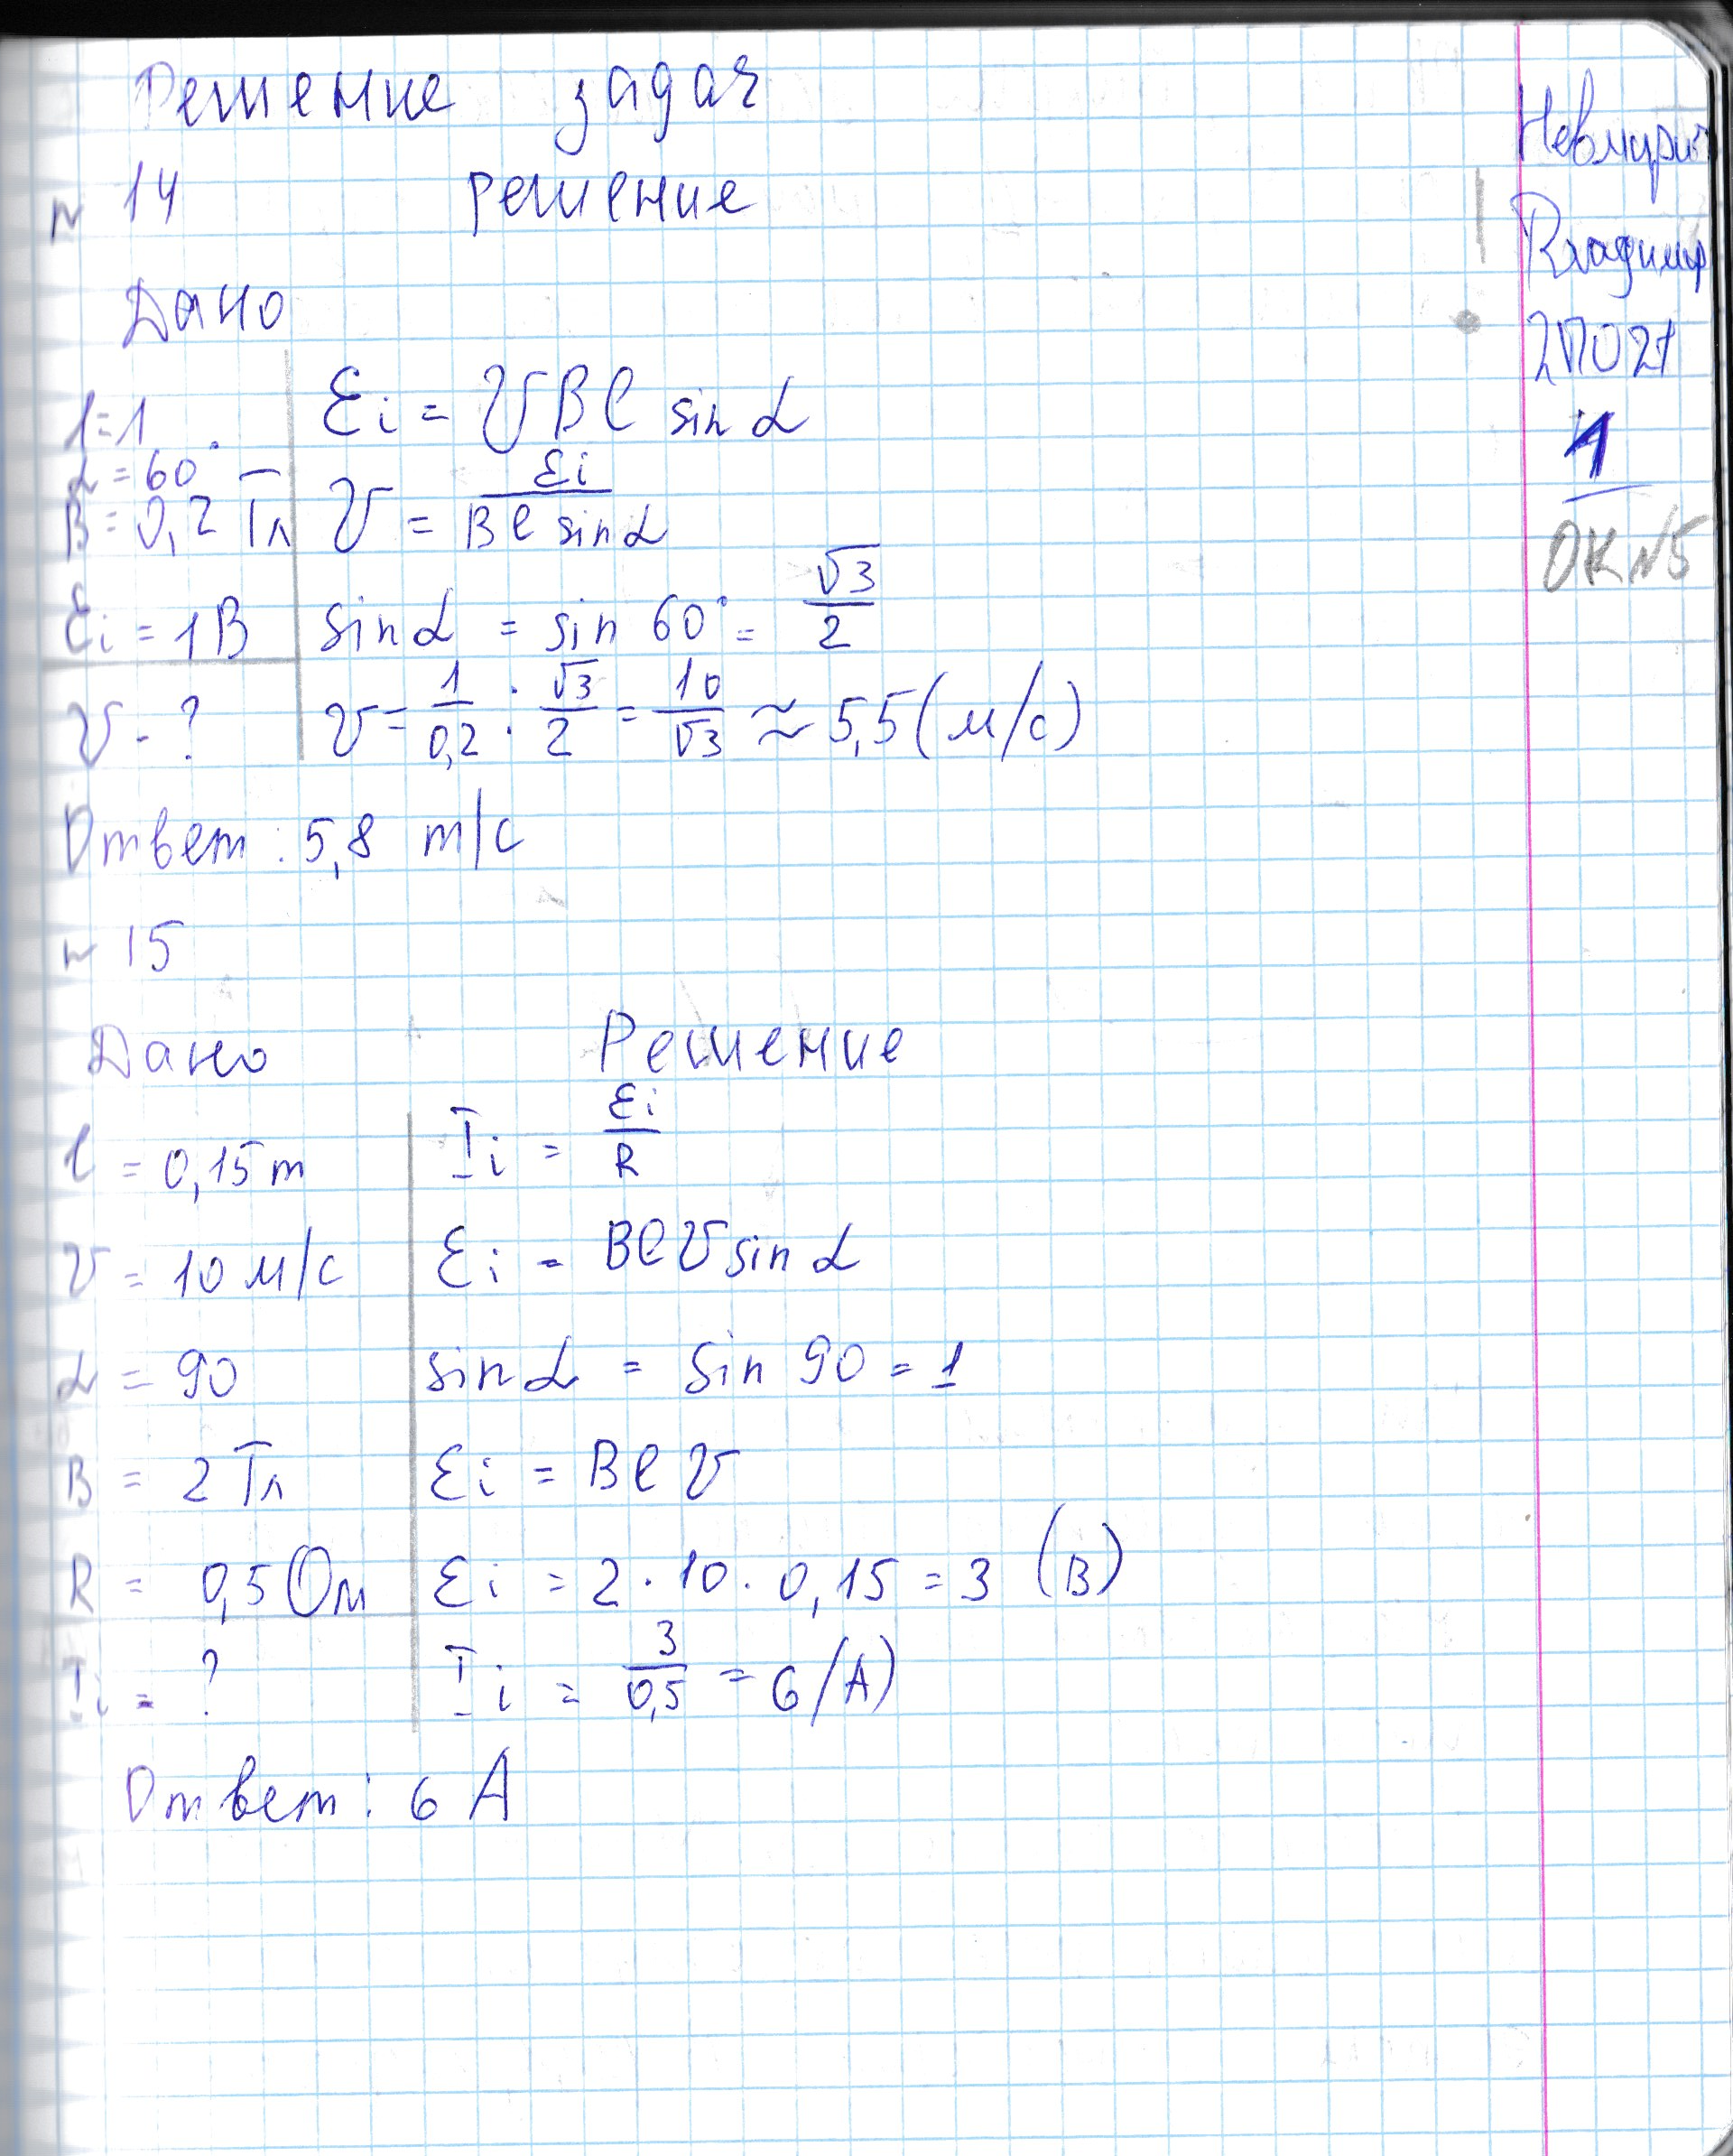 Решение задач
N 14 решение
Дано
l=1
α=60°
B=0,2 Тл
Ɛi = 1В
V - ?
Ɛi = VBl sin α
V = Ɛi / Bl sin α
sin α = sin 60° = √3/2
V = 1/0,2 : √3/2 = 10/√3 ≈ 5,5 (м/с)
Ответ: 5,8 m/c
N 15
Дано Решение
l = 0,15 m
V = 10 м/с
α = 90
B = 2 Тл
R = 0,5 Ом
Ii = ?
Ii = Ɛi/R
Ɛi = BlV sin α
sin α = sin 90 = 1
Ɛi = BlV
Ɛi = 2 · 10 · 0,15 = 3 (В)
Ii = 3/0,5 = 6 (А)
Ответ: 6 А
Владимир
2ПО21
1
ОК N5